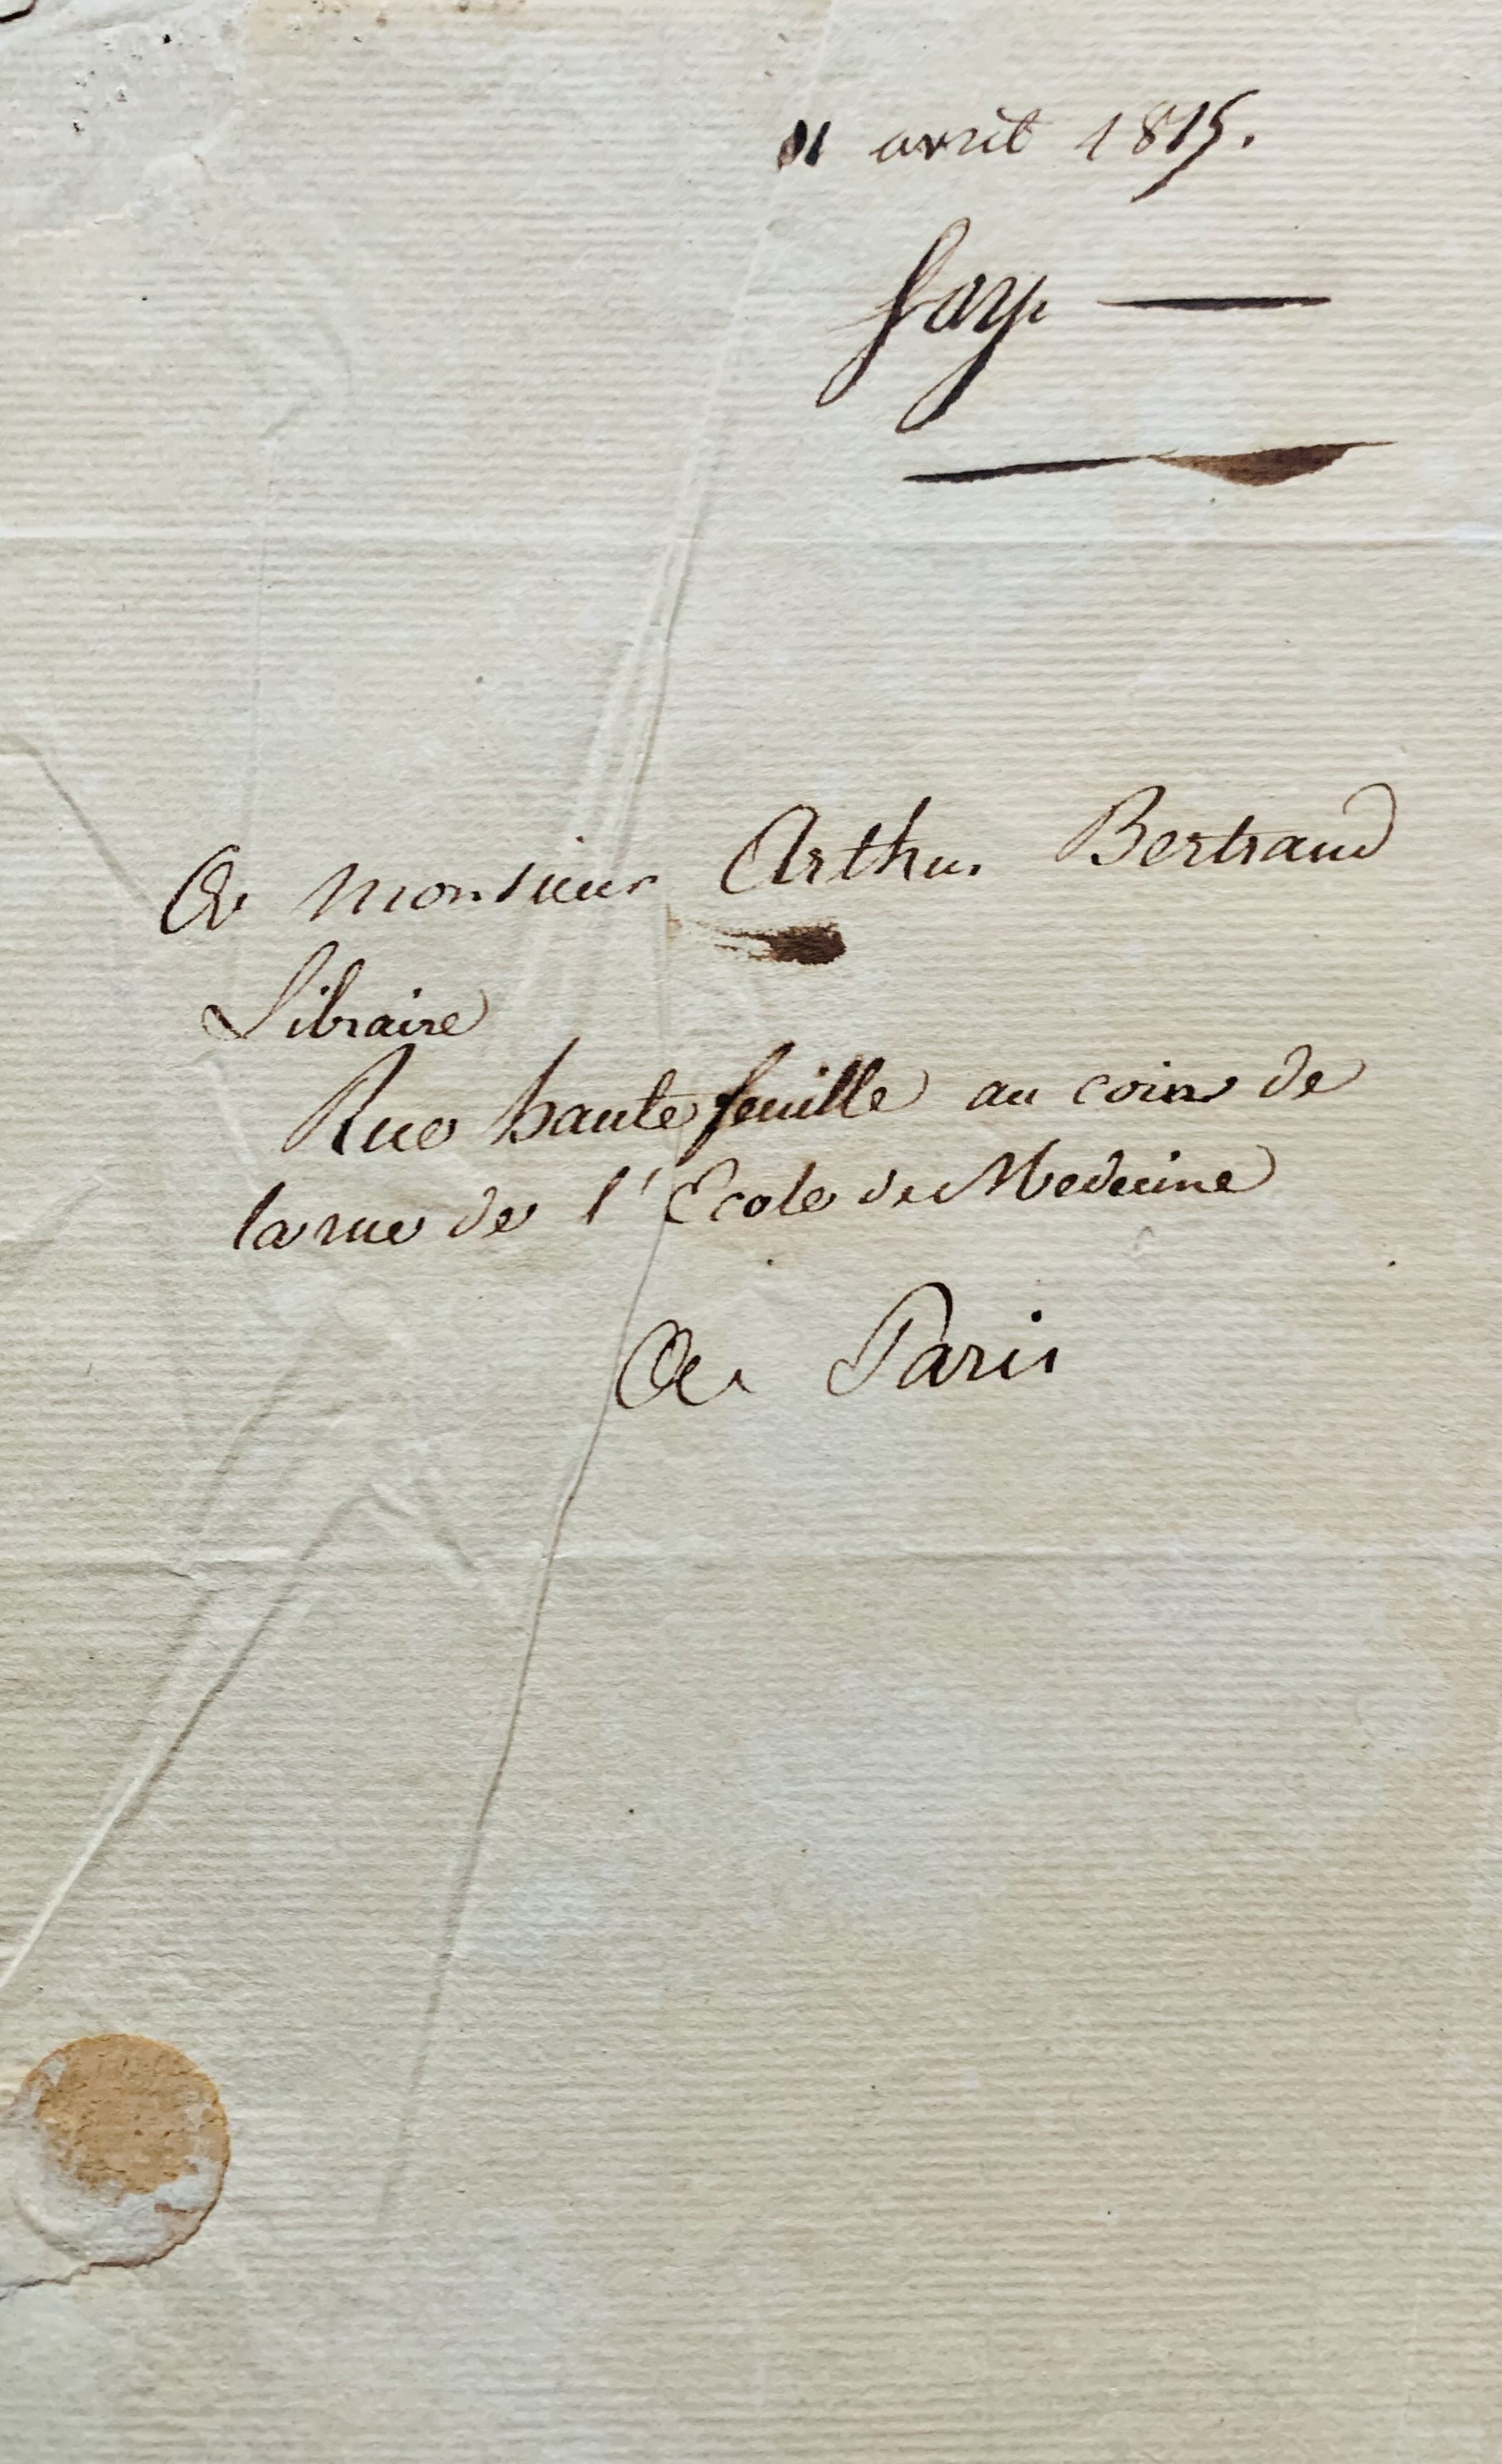 avril 1815.
A monsieur Arthus Bertrand
Libraire
Rue hautefeuille au coin de
la rue de l'Ecole de Medecine
A Paris